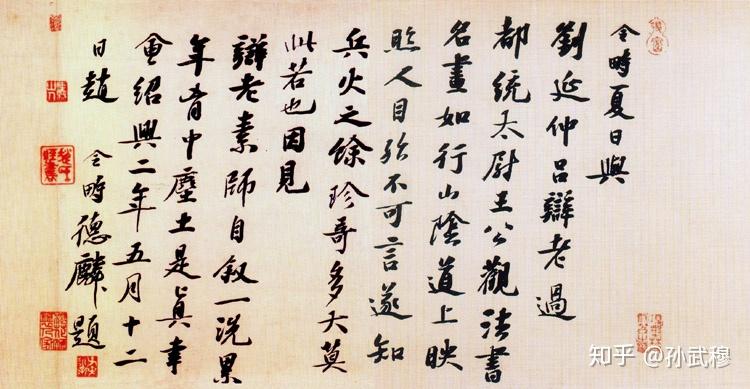 令時夏日與
劉延仲呂辯老過
都統太尉王公觀法書
名畫如行山陰道上映
照人目殆不可言遂知
兵火之餘珍竒多大莫
此若也因見
辯老素師自叙一洗累
年胷中塵土是真幸
會紹興二年五月十二
日趙 令時德麟題
知乎 @孙武穆